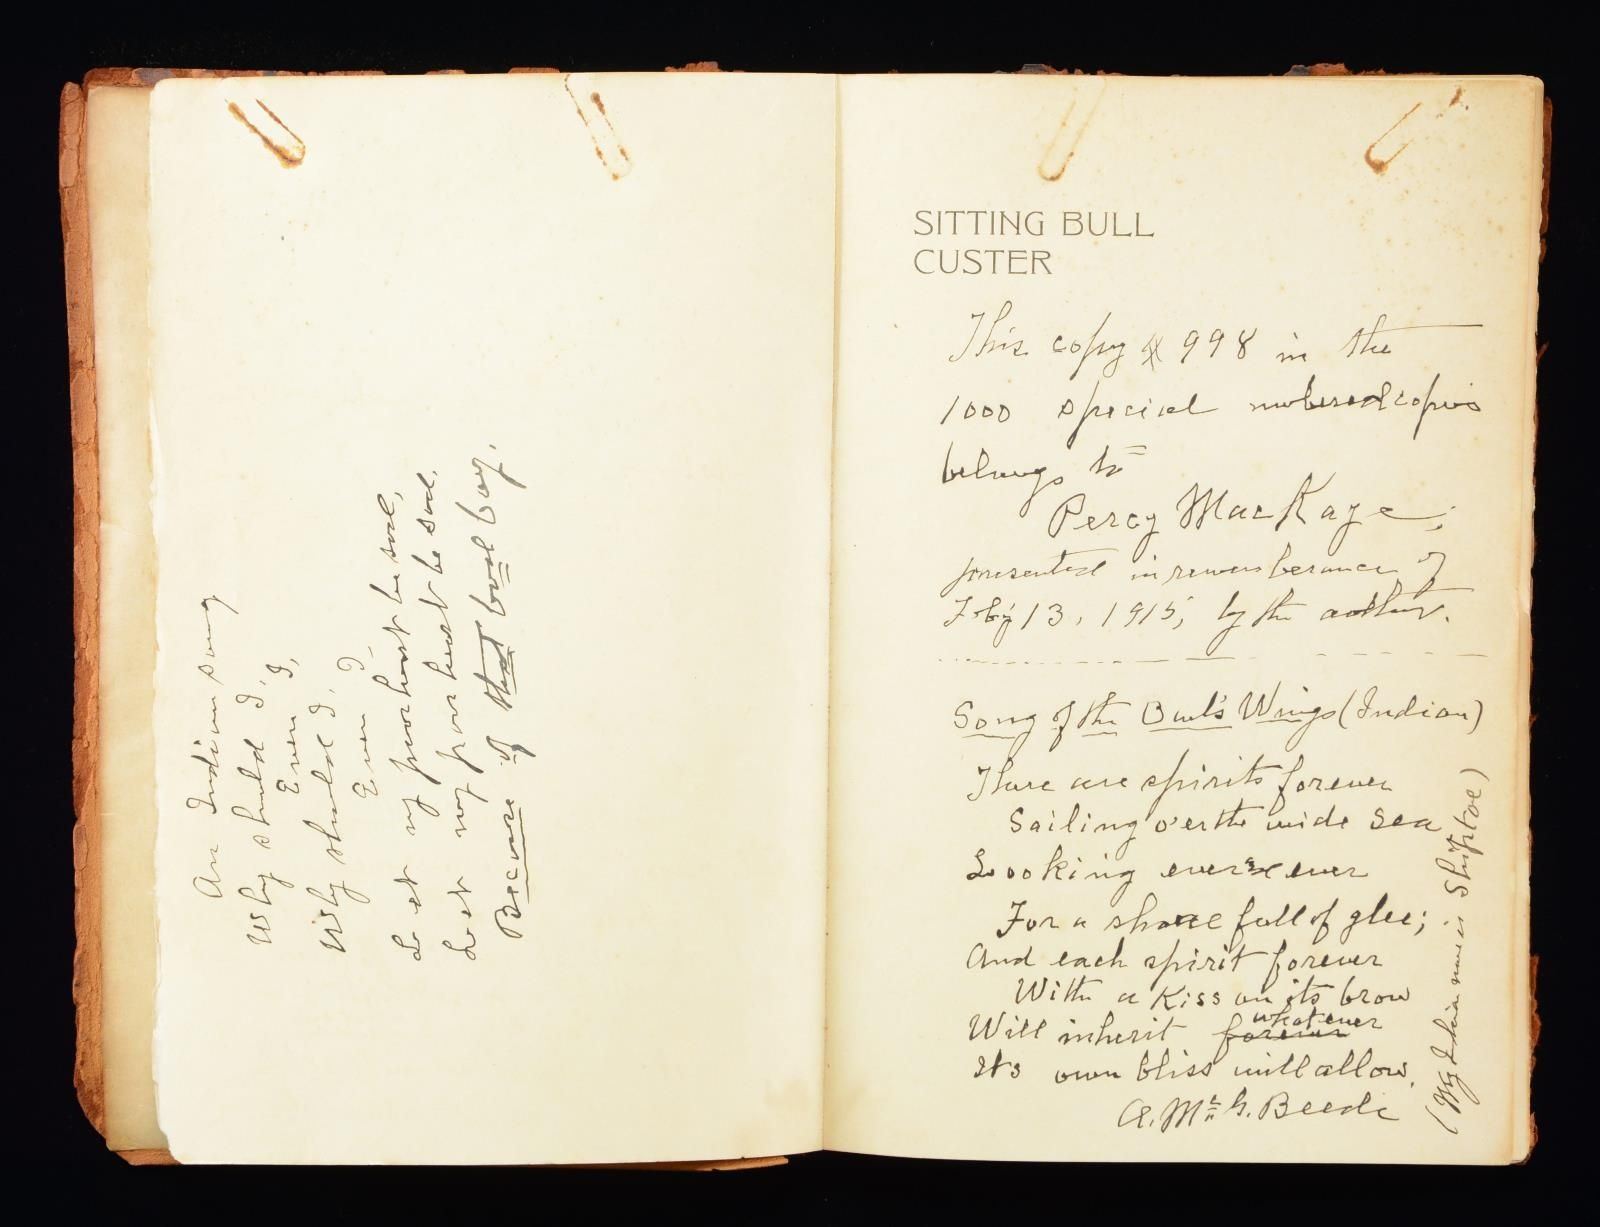 An Indian song
Why should I,
Even I,
Why should I,
Even I—
Let my poor heart be sad,
Let my poor heart be sad.
Because of that bad boy.
SITTING BULL
CUSTER
This copy # 998 in the
1000 special numbered copies
belongs to
Percy MacKaye;
presented in remembrance of
Feby 13, 1915, by the author.
Song of the Owl's Wings (Indian)
There are spirits forever
Sailing o'er the wide sea
Looking ever & ever
For a shore full of glee;
And each spirit forever
With a kiss on its brow
Will inherit forever whatever
Its own bliss will allow.
A. McG. Beede
(My Indian name is Shiptoe)